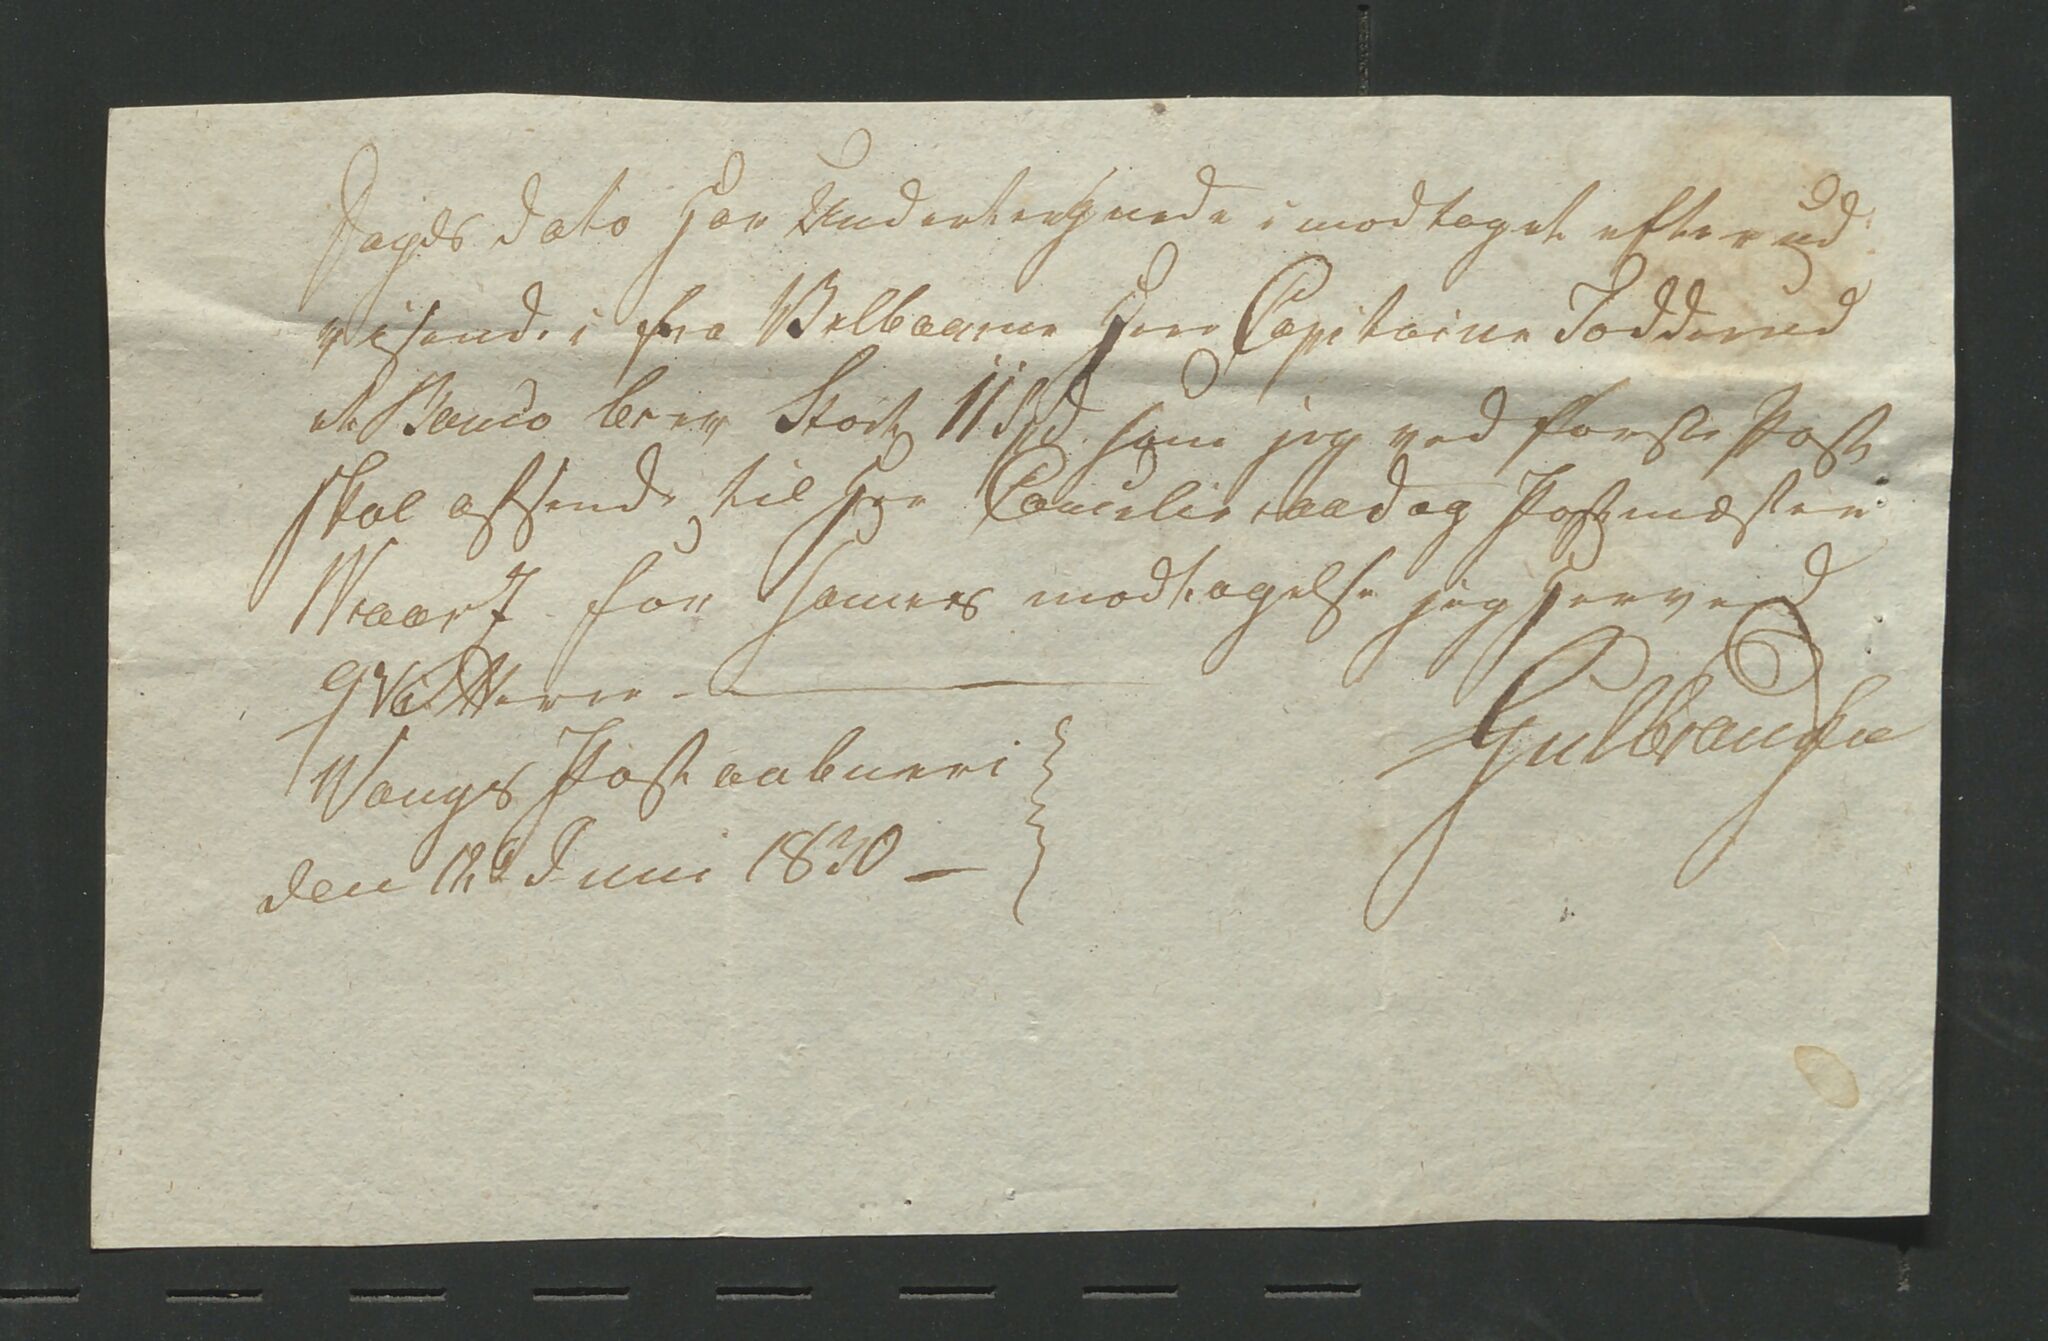 Dags dato har Undertegnede imodtaget efter ud
visende i fra Velbaarne Herr Capitaine Todderud
et Banco brev Stort 11 Spd som jeg ved første Post
skal afsende til Herr Cancelieraad og Postmæster
for sammes modtagelse jeg herved
qvitterer -
Vangs Postaabneri
den 12te Juni 1830 -
Gulbrandsen